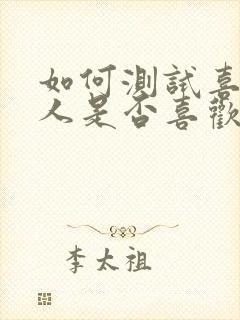 如何測試喜
人是否喜歡
李太祖